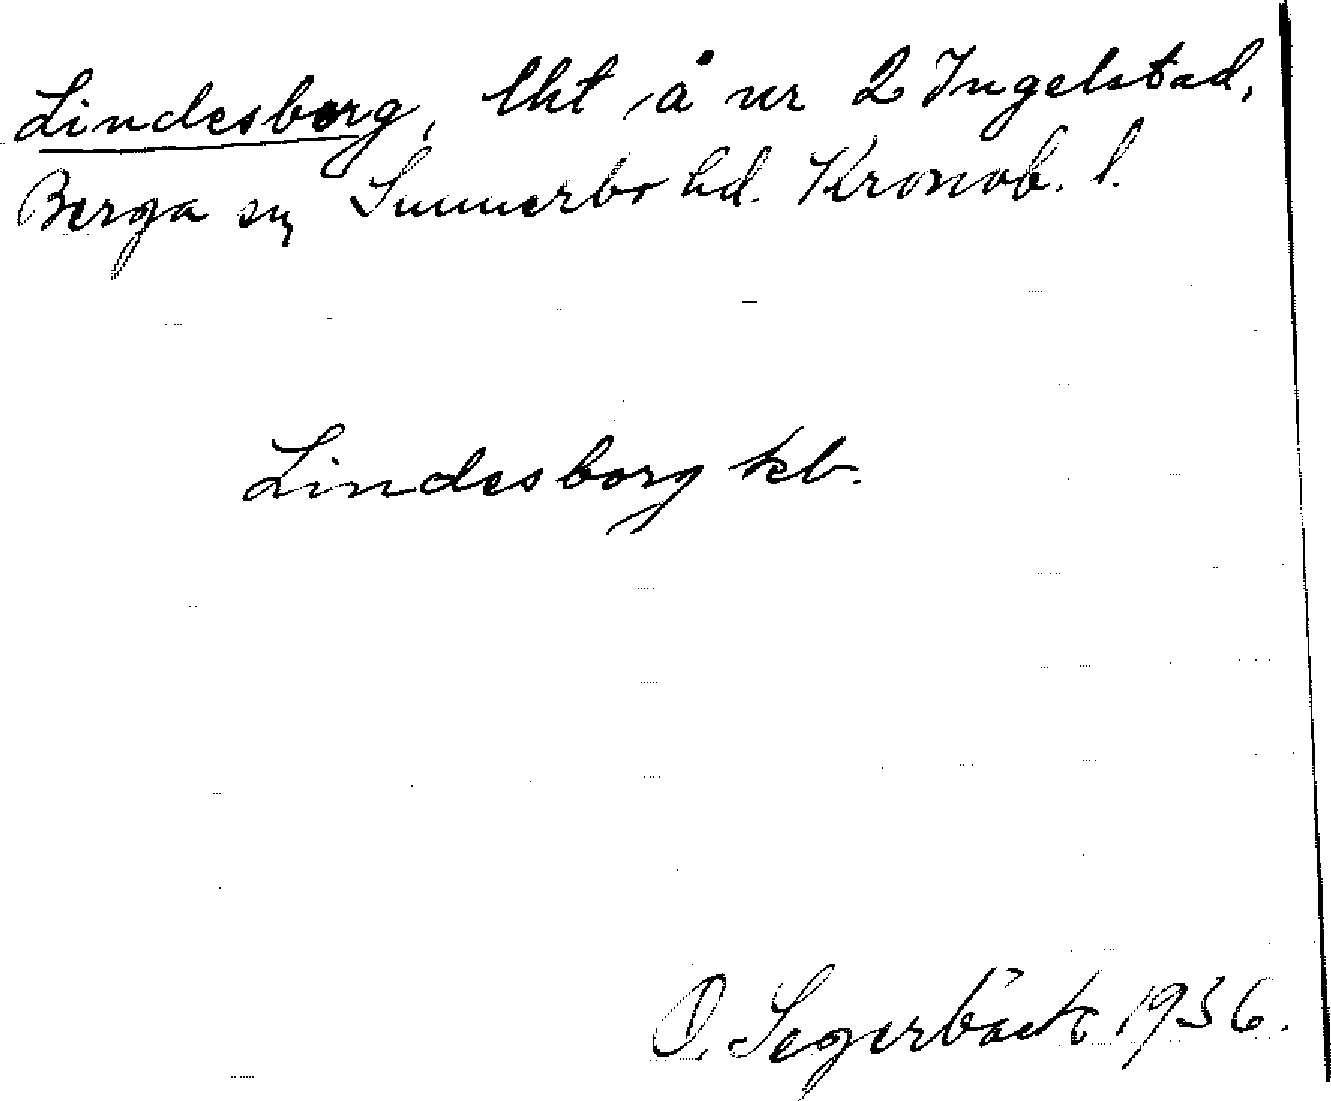 Lindesberg, lht å nr 2 Ingelstad,
Berga sn, Sunnerbo hd. Kronob. l.
Lindesborg kb.
O. Segerbäck 1936.